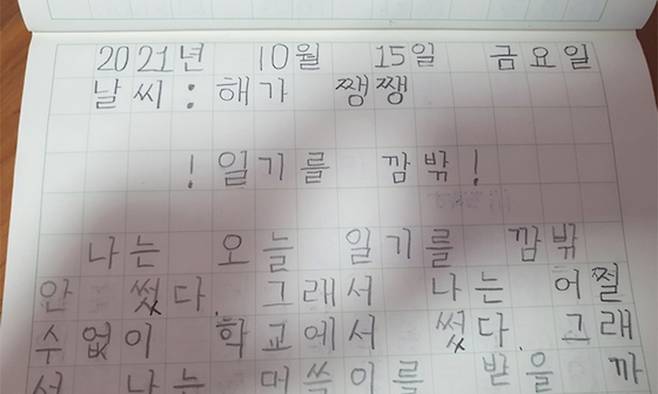 2021년 10월 15일 금요일
날씨: 해가 쨍쨍
!일기를 깜밖!
나는 오늘 일기를 깜밖
안 썼다. 그래서 나는 어쩔
수없이 학교에서 썼다. 그래
서 나는 머쓱이를 받을 까